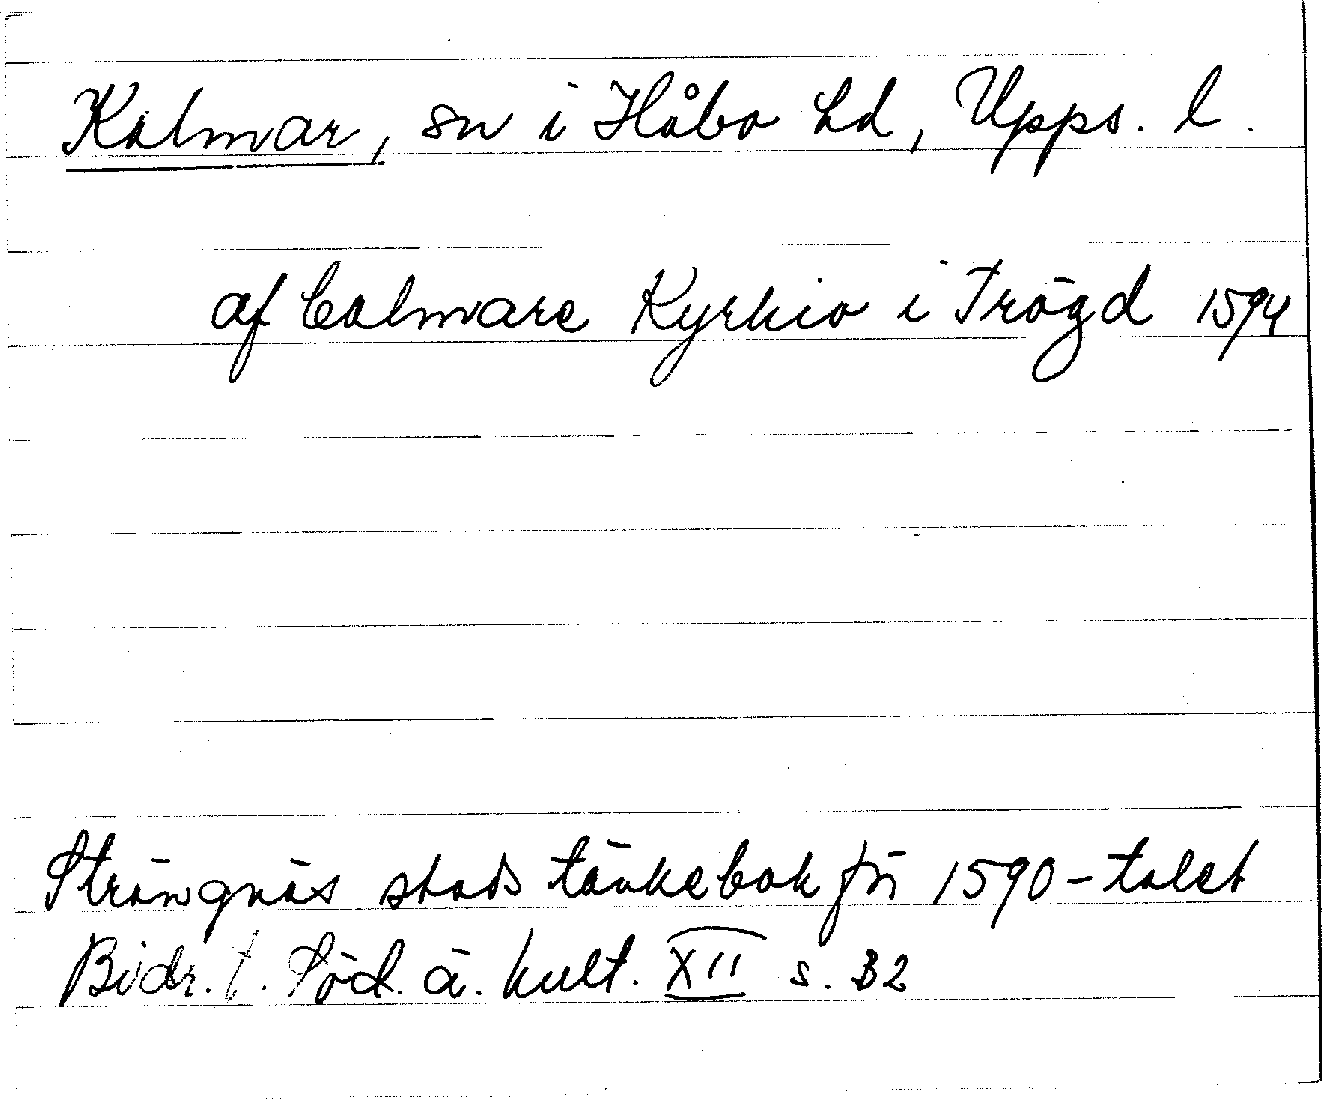 Kalmar, sn i Håbo hd, Upps. l.
af Calmare Kyrkio i Trögd 1594
Strängnäs stads tänkebok frn 1590-talet
Bidr. t. Söd. ä. kult. XII s. 32